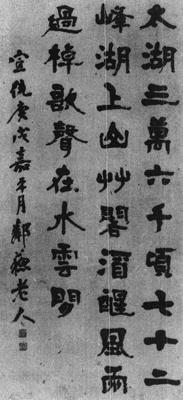 太湖三萬六千頃七十二
峰湖上山艸閣酒醒風雨
過棹歌聲在水雲間
宣統庚戌嘉平月鄰蘇老人